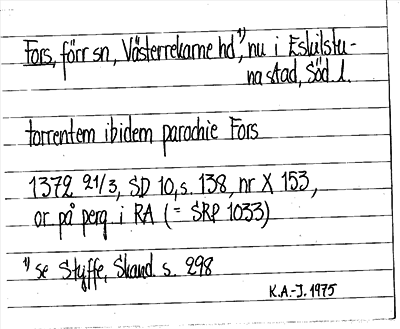 Fors, förr sn, Västerrekarne hd¹⁾, nu i Eskilstu-
na stad, Söd l.
torrentem ibidem parochie Fors
1372 21/3, SD 10, s. 138, nr X 153,
or på perg i RA (= SRP 1033)
¹⁾ se Styffe, Skand. s. 298
K.A.-J. 1975